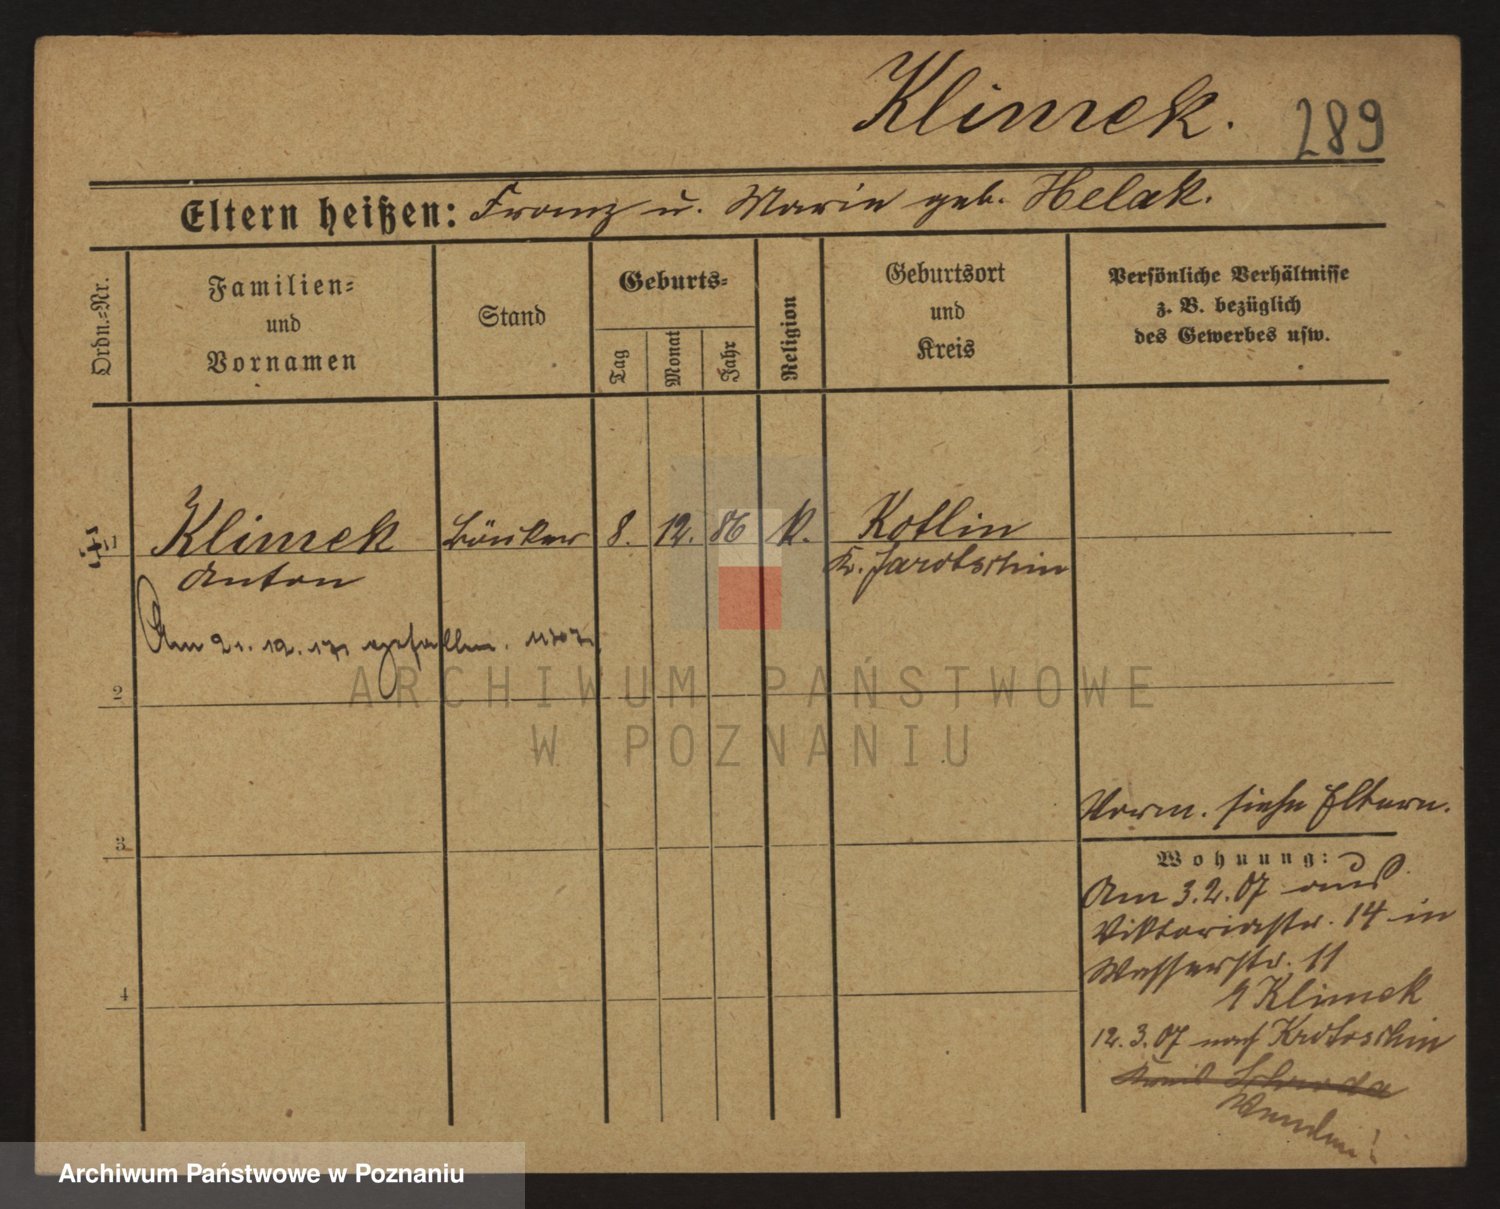 Klimek.
289
Eltern heißen: Franz u. Marie geb. Helak.
Ordn.=Nr.
Familien=
und
Vornamen
Stand
Geburts=
Tag
Monat
Jahr
Religion
Geburtsort
und
Kreis
Persönliche Verhältnisse
z. B. bezüglich
des Gewerbes usw.
1
Klimek
Anton
8.
12.
86
k.
Kotlin
Kr. Jarotschin
Am 21. 12. 17 gefallen.
2
3
4
Vorm. siehe Eltern.
Wohnung:
Am 3.2.07 aus
Viktoriastr. 14 in
Wasserstr. 11
Klimek
12.3.07 nach Krotoschin
Schroda
Wenden!
ARCHIWUM PAŃSTWOWE
W POZNANIU
Archiwum Państwowe w Poznaniu